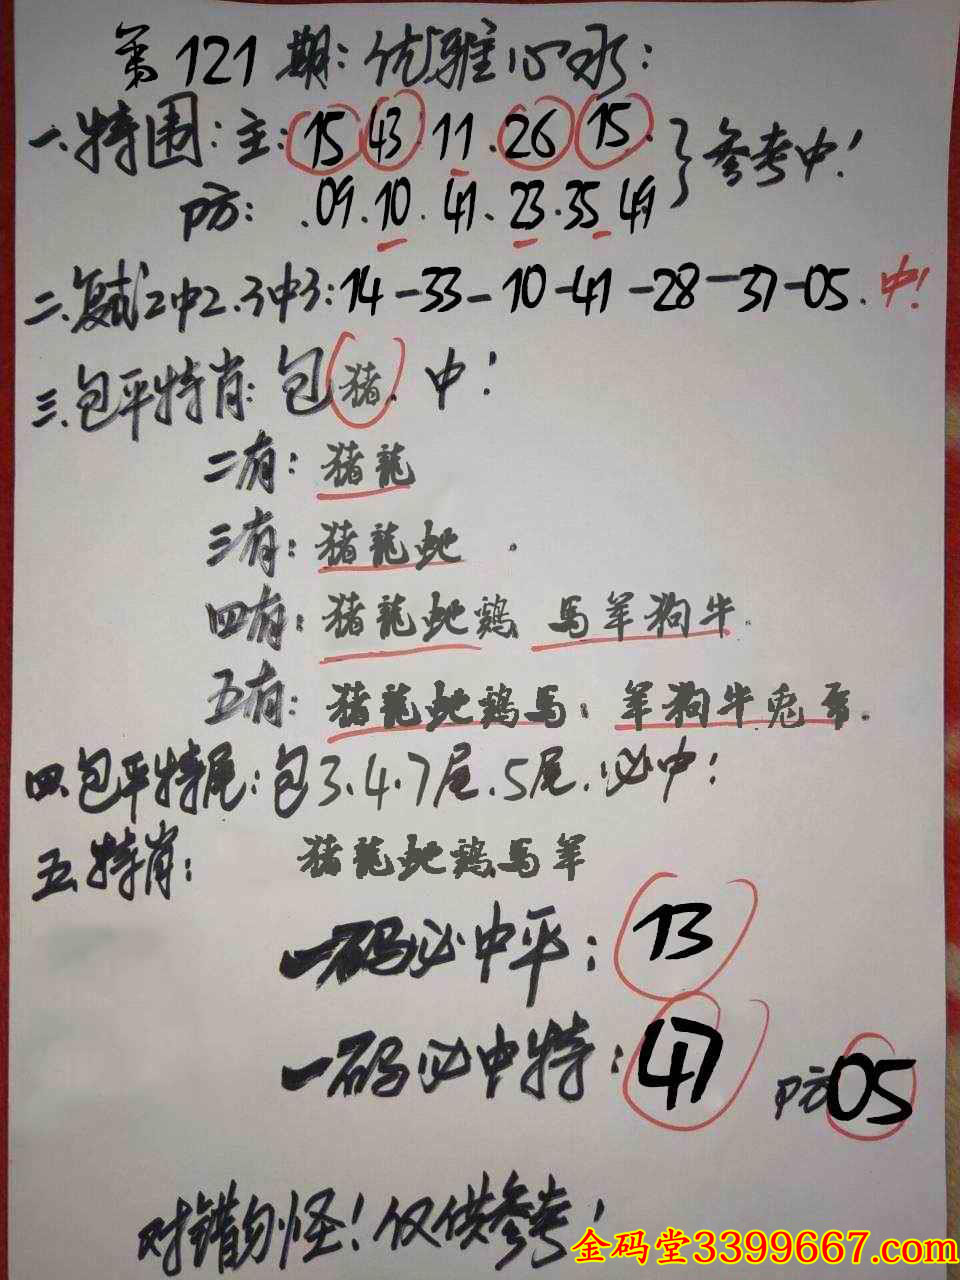 第121期:优雅心水:
一.特围:主:15.43.11.26.15.
防:.09.10.41.23.35.49
参考中!
二.复试2中2.3中3:14-33-10-41-28-37-05.中!
三.包平特肖:包猪.中!
二有:猪龍
三有:猪龍蛇.
四有:猪龍蛇鷄 馬羊狗牛.
五有:猪龍蛇鷄馬:羊狗牛兎
四.包平特尾:包3.4.7尾.5尾.必中!
五.特肖:猪龍蛇鷄馬羊
一码必中平:13
一码必中特:47 防05
对错勿怪!仅供参考!
金码堂3399667.com